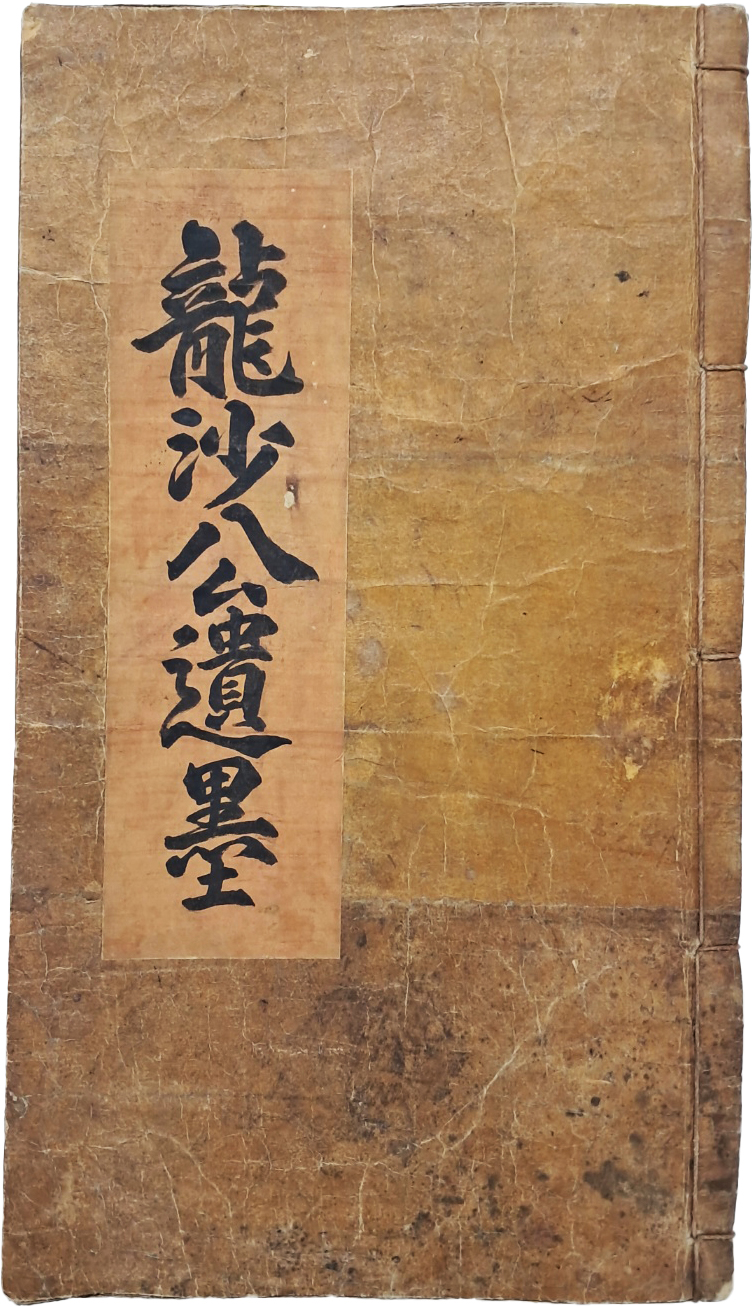 龍沙公遺墨